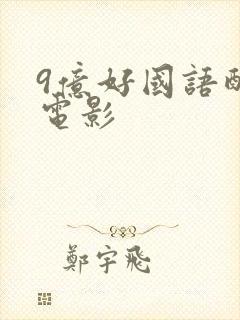 9億好國語
電影
鄭宇飛